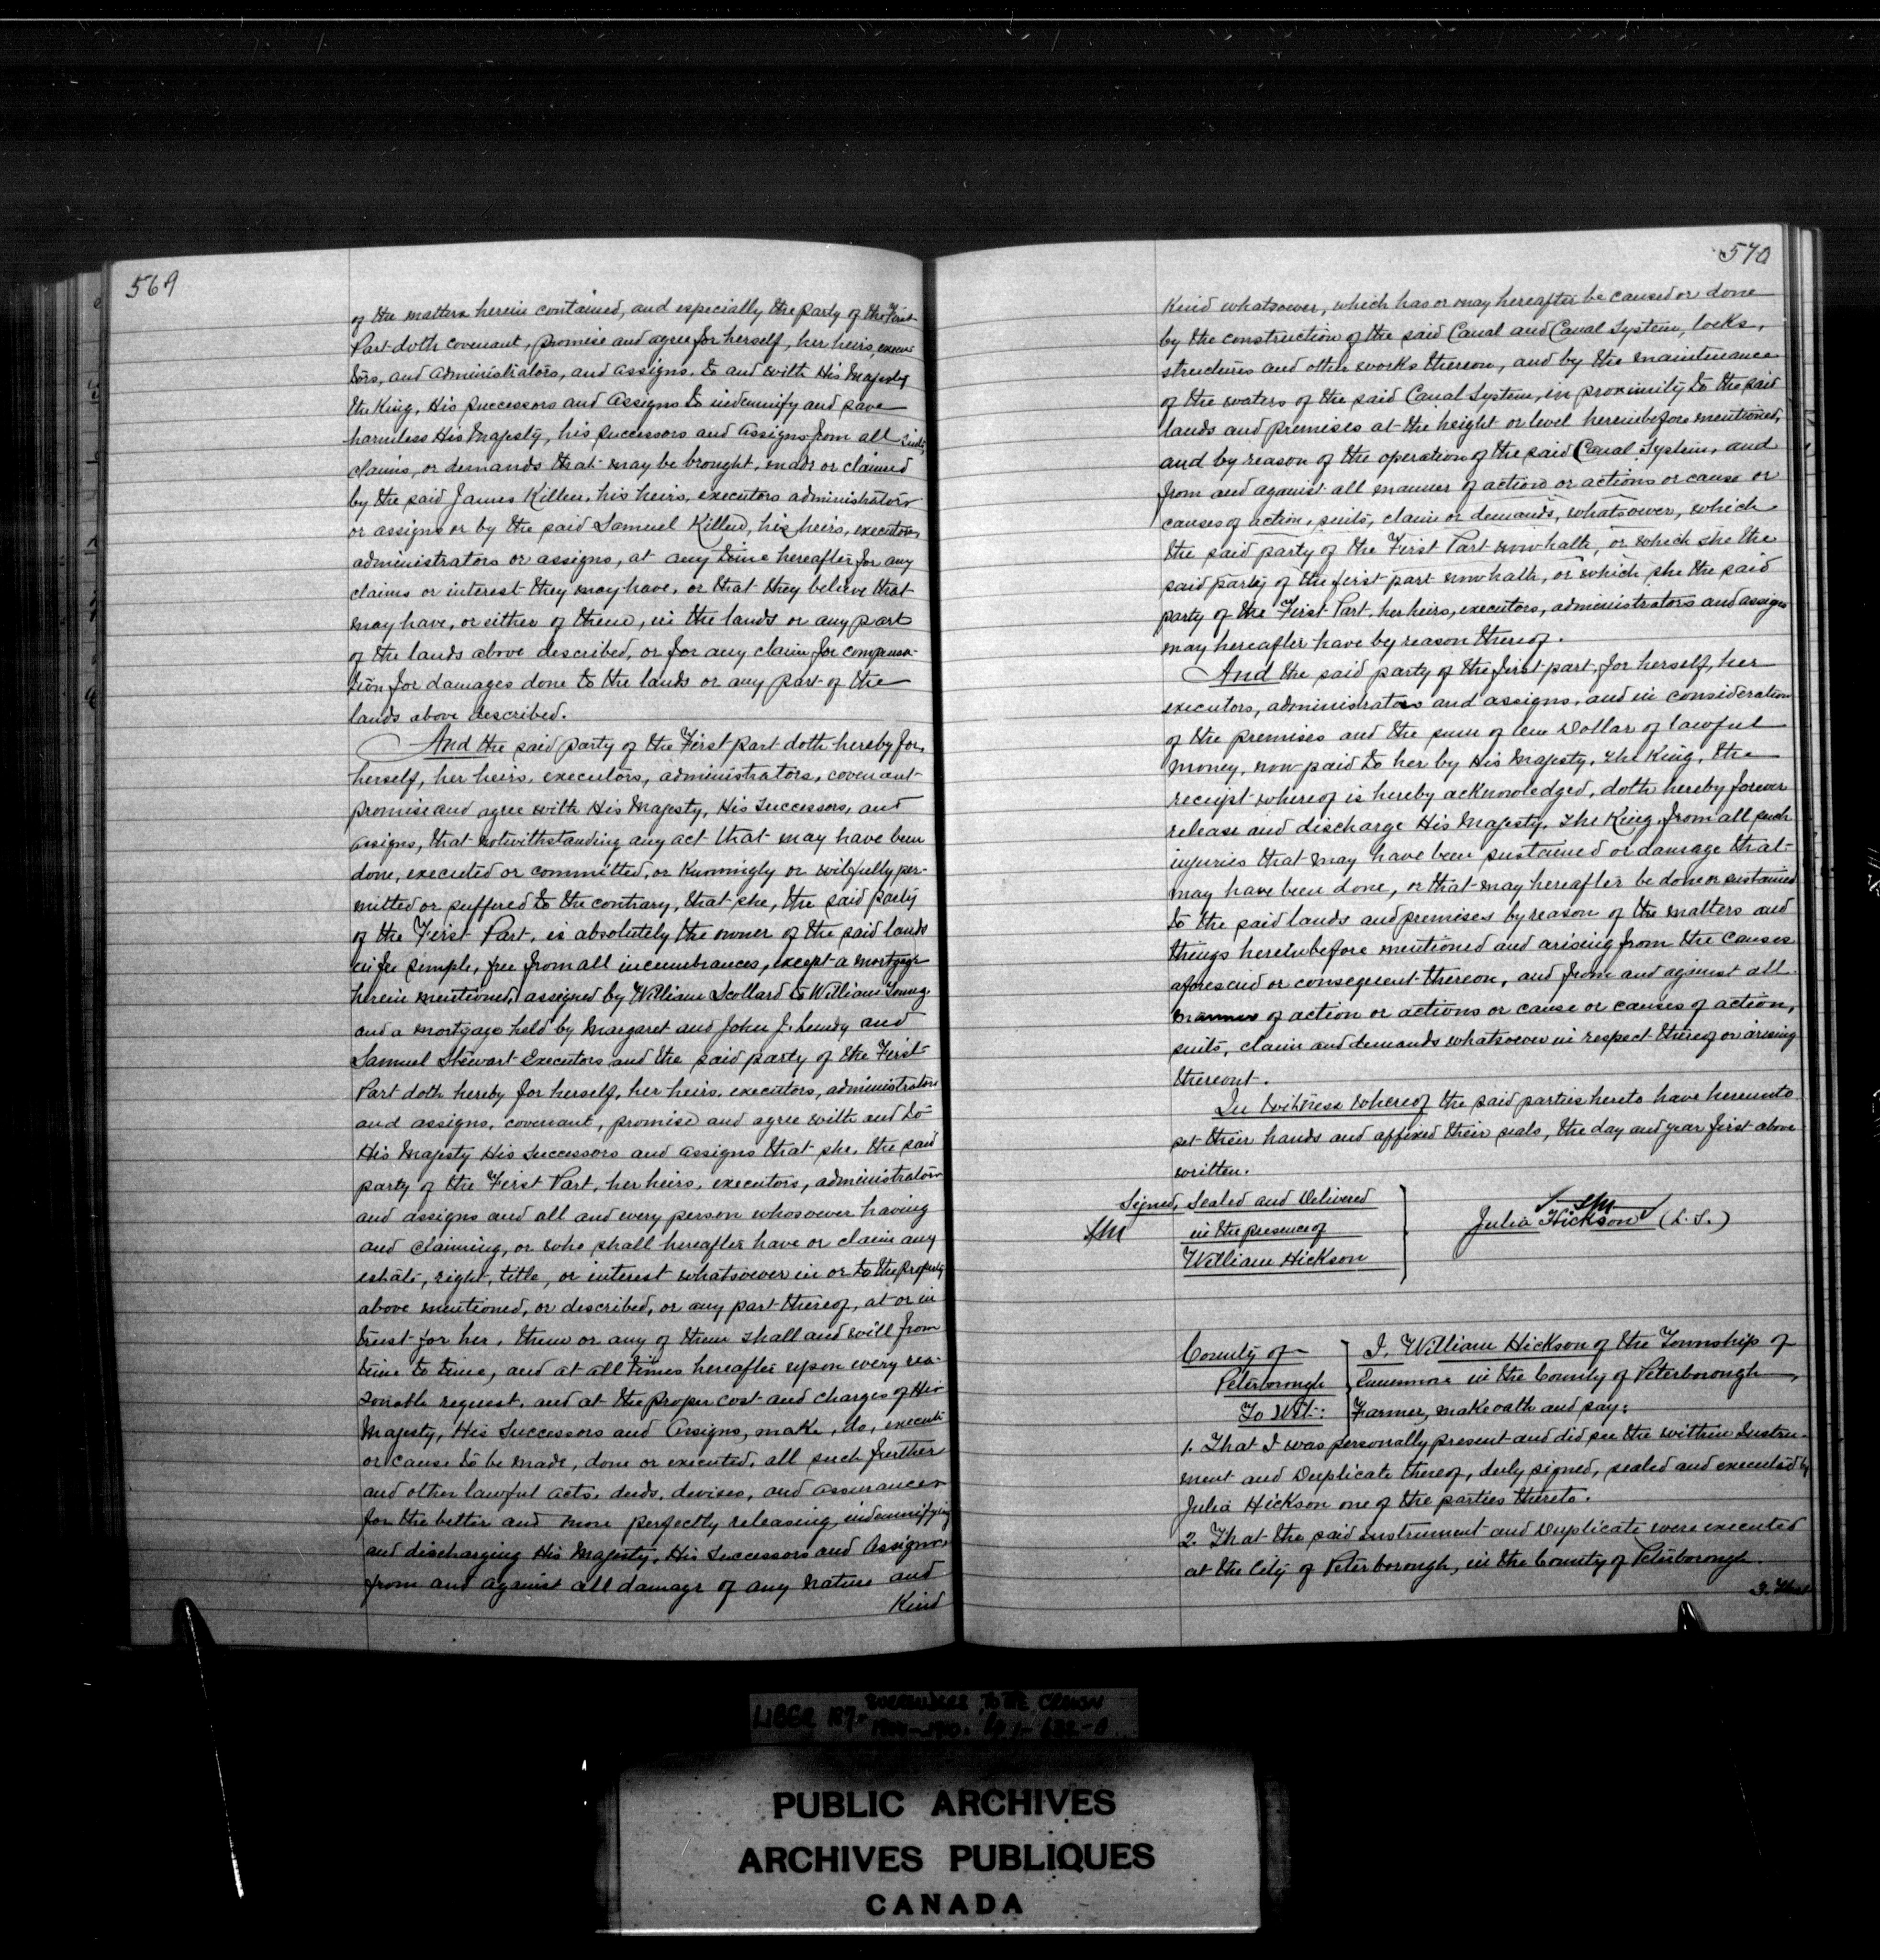 569
of the matters herein contained, and especially the party of the First
Part doth covenant, promise and agree for herself, her heirs, execu-
tors, and administrators, and assigns, to and with His Majesty
the King, His Successors and Assigns to indemnify and save
harmless His Majesty, his successors and assigns from all suits,
claims, or demands that may be brought, made or claimed
by the said James Killen, his heirs, executors administrators
or assigns or by the said Samuel Killen, his heirs, executors
administrators or assigns, at any time hereafter for any
claims or interest they may have, or that they believe that
may have, or either of them, in the lands or any part
of the lands above described, or for any claim for compensa-
tion for damages done to the lands or any part of the
lands above described.
And the said party of the First part doth hereby for
herself, her heirs, executors, administrators, covenant
promise and agree with His Majesty, His Successors, and
assigns, that notwithstanding any act that may have been
done, executed or committed, or knowingly or wilfully per-
mitted or suffered to the contrary, that she, the said party
of the First Part, is absolutely the owner of the said lands
in fee simple, free from all incumbrances, except a mortgage
herein mentioned, assigned by William Scollard to William Young
and a mortgage held by Margaret and John J. Lundy and
Samuel Stewart Executors and the said party of the First
Part doth hereby for herself, her heirs, executors, administrators
and assigns, covenant, promise and agree with and to
His Majesty His Successors and assigns that she, the said
party of the First Part, her heirs, executors, administrators
and assigns and all and every person whosoever having
and claiming, or who shall hereafter have or claim any
estate, right, title, or interest whatsoever in or to the property
above mentioned, or described, or any part thereof, at or in
trust for her, them or any of them shall and will from
time to time, and at all times hereafter upon every rea-
sonable request, and at the proper cost and charges of His
Majesty, His Successors and Assigns, make, do, execute
or cause to be made, done or executed, all such further
and other lawful acts, deeds, devises, and assurances
for the better and more perfectly releasing, indemnifying
and discharging His Majesty, His Successors and Assigns
from and against all damage of any nature and
Kind
570
Kind whatsoever, which has or may hereafter be caused or done
by the construction of the said Canal and Canal System, locks,
structures and other works thereon, and by the maintenance
of the waters of the said Canal System, in proximity to the said
lands and premises at the height or level hereinbefore mentioned,
and by reason of the operation of the said Canal System, and
from and against all manner of action or actions or cause or
causes of action, suits, claim or demands, whatsoever, which
the said party of the First Part now hath, or which she the
said party of the first part now hath, or which she the said
party of the First Part, her heirs, executors, administrators and assigns
may hereafter have by reason thereof.
And the said party of the first part, for herself, her
executors, administrators and assigns, and in consideration
of the premises and the sum of one Dollar of lawful
money, now paid to her by His Majesty, The King, the
receipt whereof is hereby acknowledged, doth hereby forever
release and discharge His Majesty, The King, from all such
injuries that may have been sustained or damage that
may have been done, or that may hereafter be done or sustained
to the said lands and premises by reason of the matters and
things hereinbefore mentioned and arising from the causes
aforesaid or consequent thereon, and from and against all
manner of action or actions or cause or causes of action,
suits, claim and demands whatsoever in respect thereof or arising
thereout.
In Witness Whereof the said parties hereto have hereunto
set their hands and affixed their seals, the day and year first above
written.
Signed, Sealed and Delivered
in the presence of
William Hickson
Julia Hickson (L.S.)
County of
Peterborough
To Wit:
I, William Hickson of the Township of
Ennismore in the County of Peterborough,
Farmer, make oath and say:
1. That I was personally present and did see the within Instru-
ment and Duplicate thereof, duly signed, sealed and executed by
Julia Hickson one of the parties thereto.
2. That the said instrument and Duplicate were executed
at the City of Peterborough, in the County of Peterborough.
3. That
LIBER 137. SURRENDERS TO THE CROWN
PUBLIC ARCHIVES
ARCHIVES PUBLIQUES
CANADA